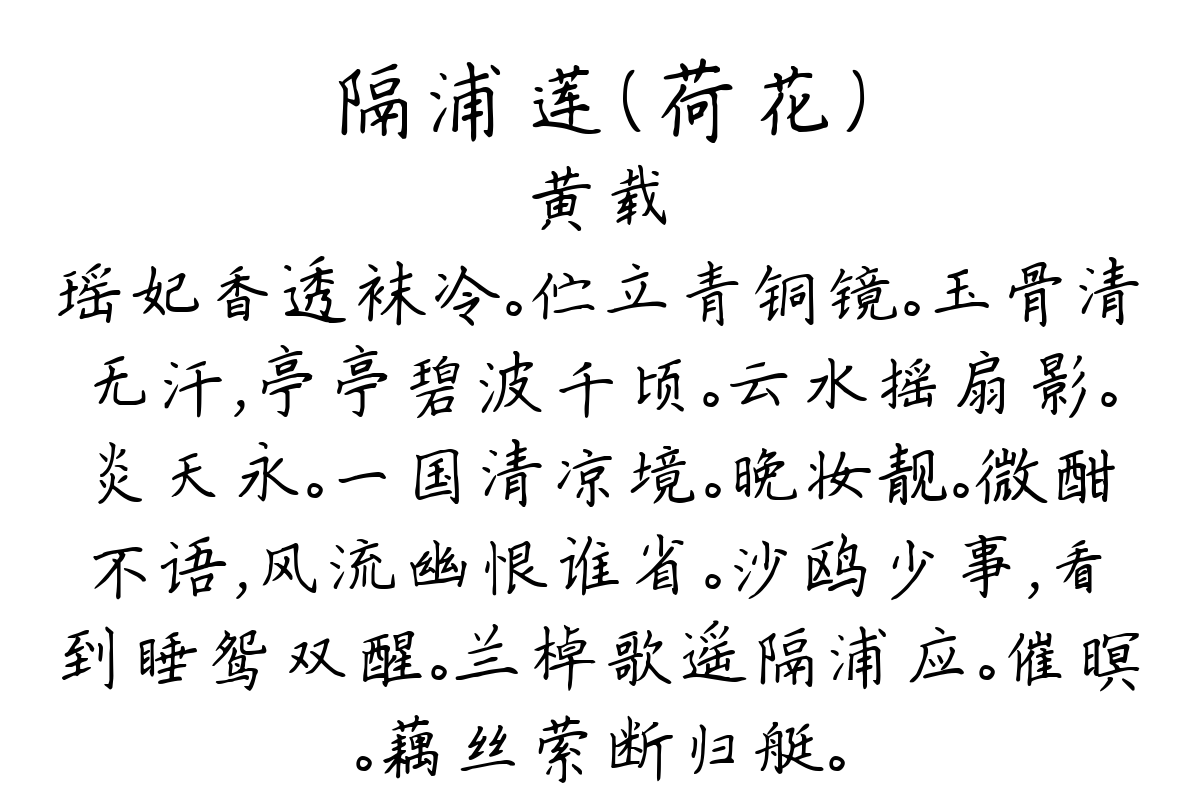 隔浦莲(荷花)
黄载
瑶妃香透袜冷。伫立青铜镜。玉骨清
无汗,亭亭碧波千顷。云水摇扇影。
炎天永。一国清凉境。晚妆靓。微酣
不语,风流幽恨谁省。沙鸥少事,看
到睡鸳双醒。兰棹歌遥隔浦应。催暝
。藕丝萦断归艇。